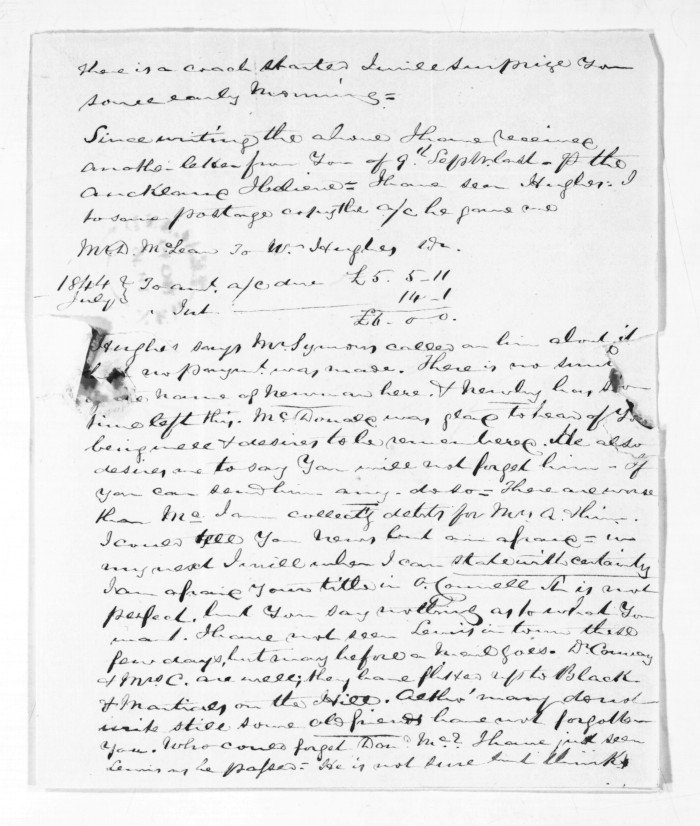 there is a coach started I will surprize you
some early Morning =
Since writing the above I have received
another letter from You of 9th Septr. last - P the
Auckland I believe = I have seen Hughes. I
to save postage copy the a/c he gave me
Mr D. McLean To Wm. Hughes Dr.
1844 } To amt. a/c due £5. 5-11
July } " Int 14-1
£6. 0 0.
Hughes says Mr Symons called on him about it
but no paymt. was made. There is no such
name of Newman here. & Newby has
time left this. McDonald was glad to hear of You
being well & desires to be remembered. He also
desires me to say You will not forget him - If
you can send him any. do so = There are worse
than Me I am collectg debts for Mrs
I could tell You News but am afraid = in
my next I will when I can state with certainty
I am afraid Your title in O'Connell St is not
perfect. but You say nothing as to what You
want. I have not seen Lewis in town these
few days, but may before a Mail goes. Dr Conway
& Mrs C. are well; they have flitted up to Black
& Martins on the Hill. Altho' many do not
write still some old friends have not forgotten
You. Who could forget Don Mc? I have just seen
Lewis as he passed = He is not sure but thinks